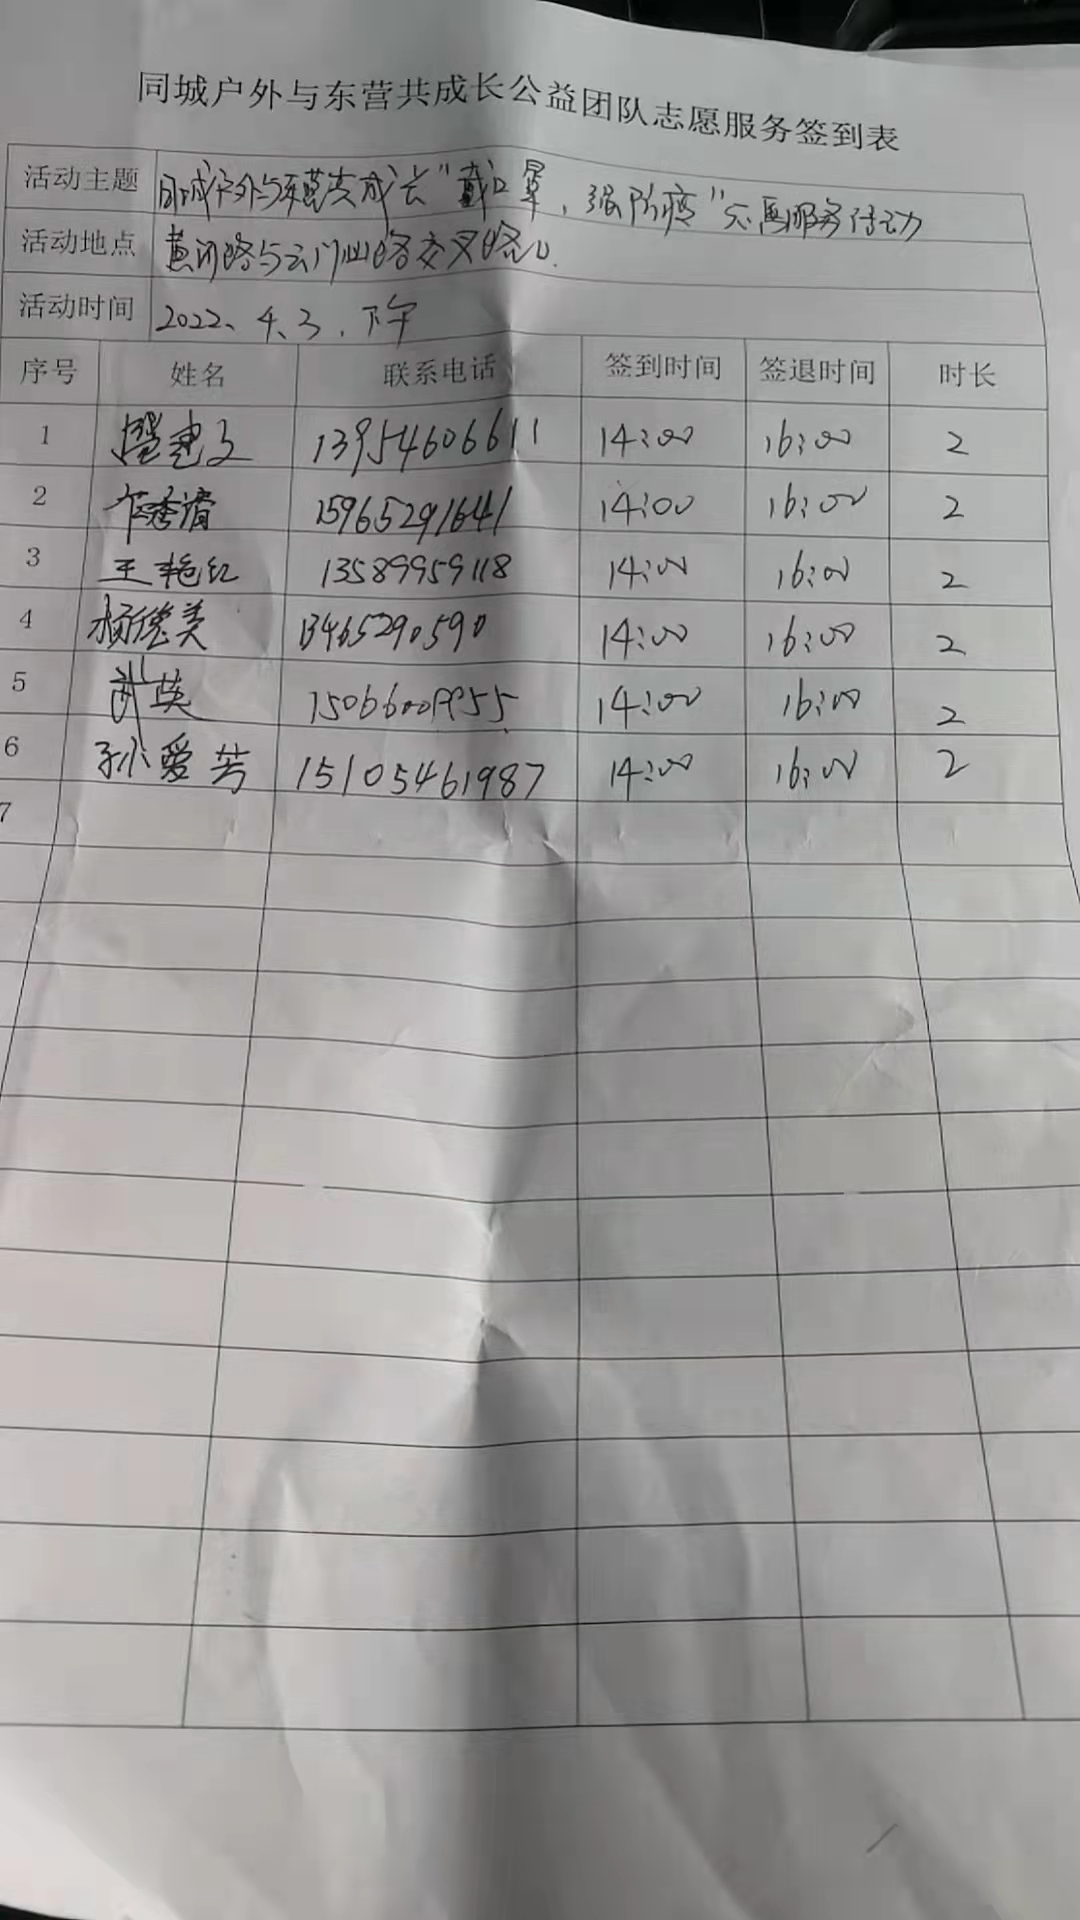 同城户外与东营共成长公益团队志愿服务签到表
活动主题 同城户外与东营共成长"戴口罩，强防疫"志愿服务活动
活动地点 黄河路与云门山路交叉路口.
活动时间 2022、4、3、下午
序号 姓名 联系电话 签到时间 签退时间 时长
1 建文 13954606611 14:00 16:00 2
2 秀清 15965291641 14:00 16:00 2
3 王艳红 13589959118 14:00 16:00 2
4 杨德美 13465290590 14:00 16:00 2
5 武英 14:00 16:00 2
6 孙爱芳 15105461987 14:00 16:00 2
7